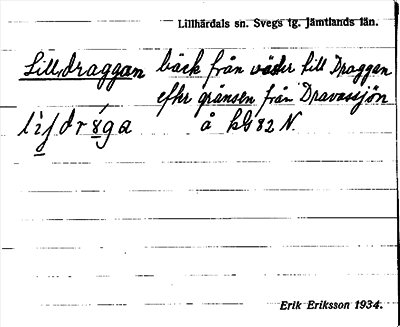 Lillhärdals sn. Svegs tg. Jämtlands län.
Lilldraggan bäck från väster till Draggan
efter gränsen från Dravassjön
å kG 82 N.
Erik Eriksson 1934.